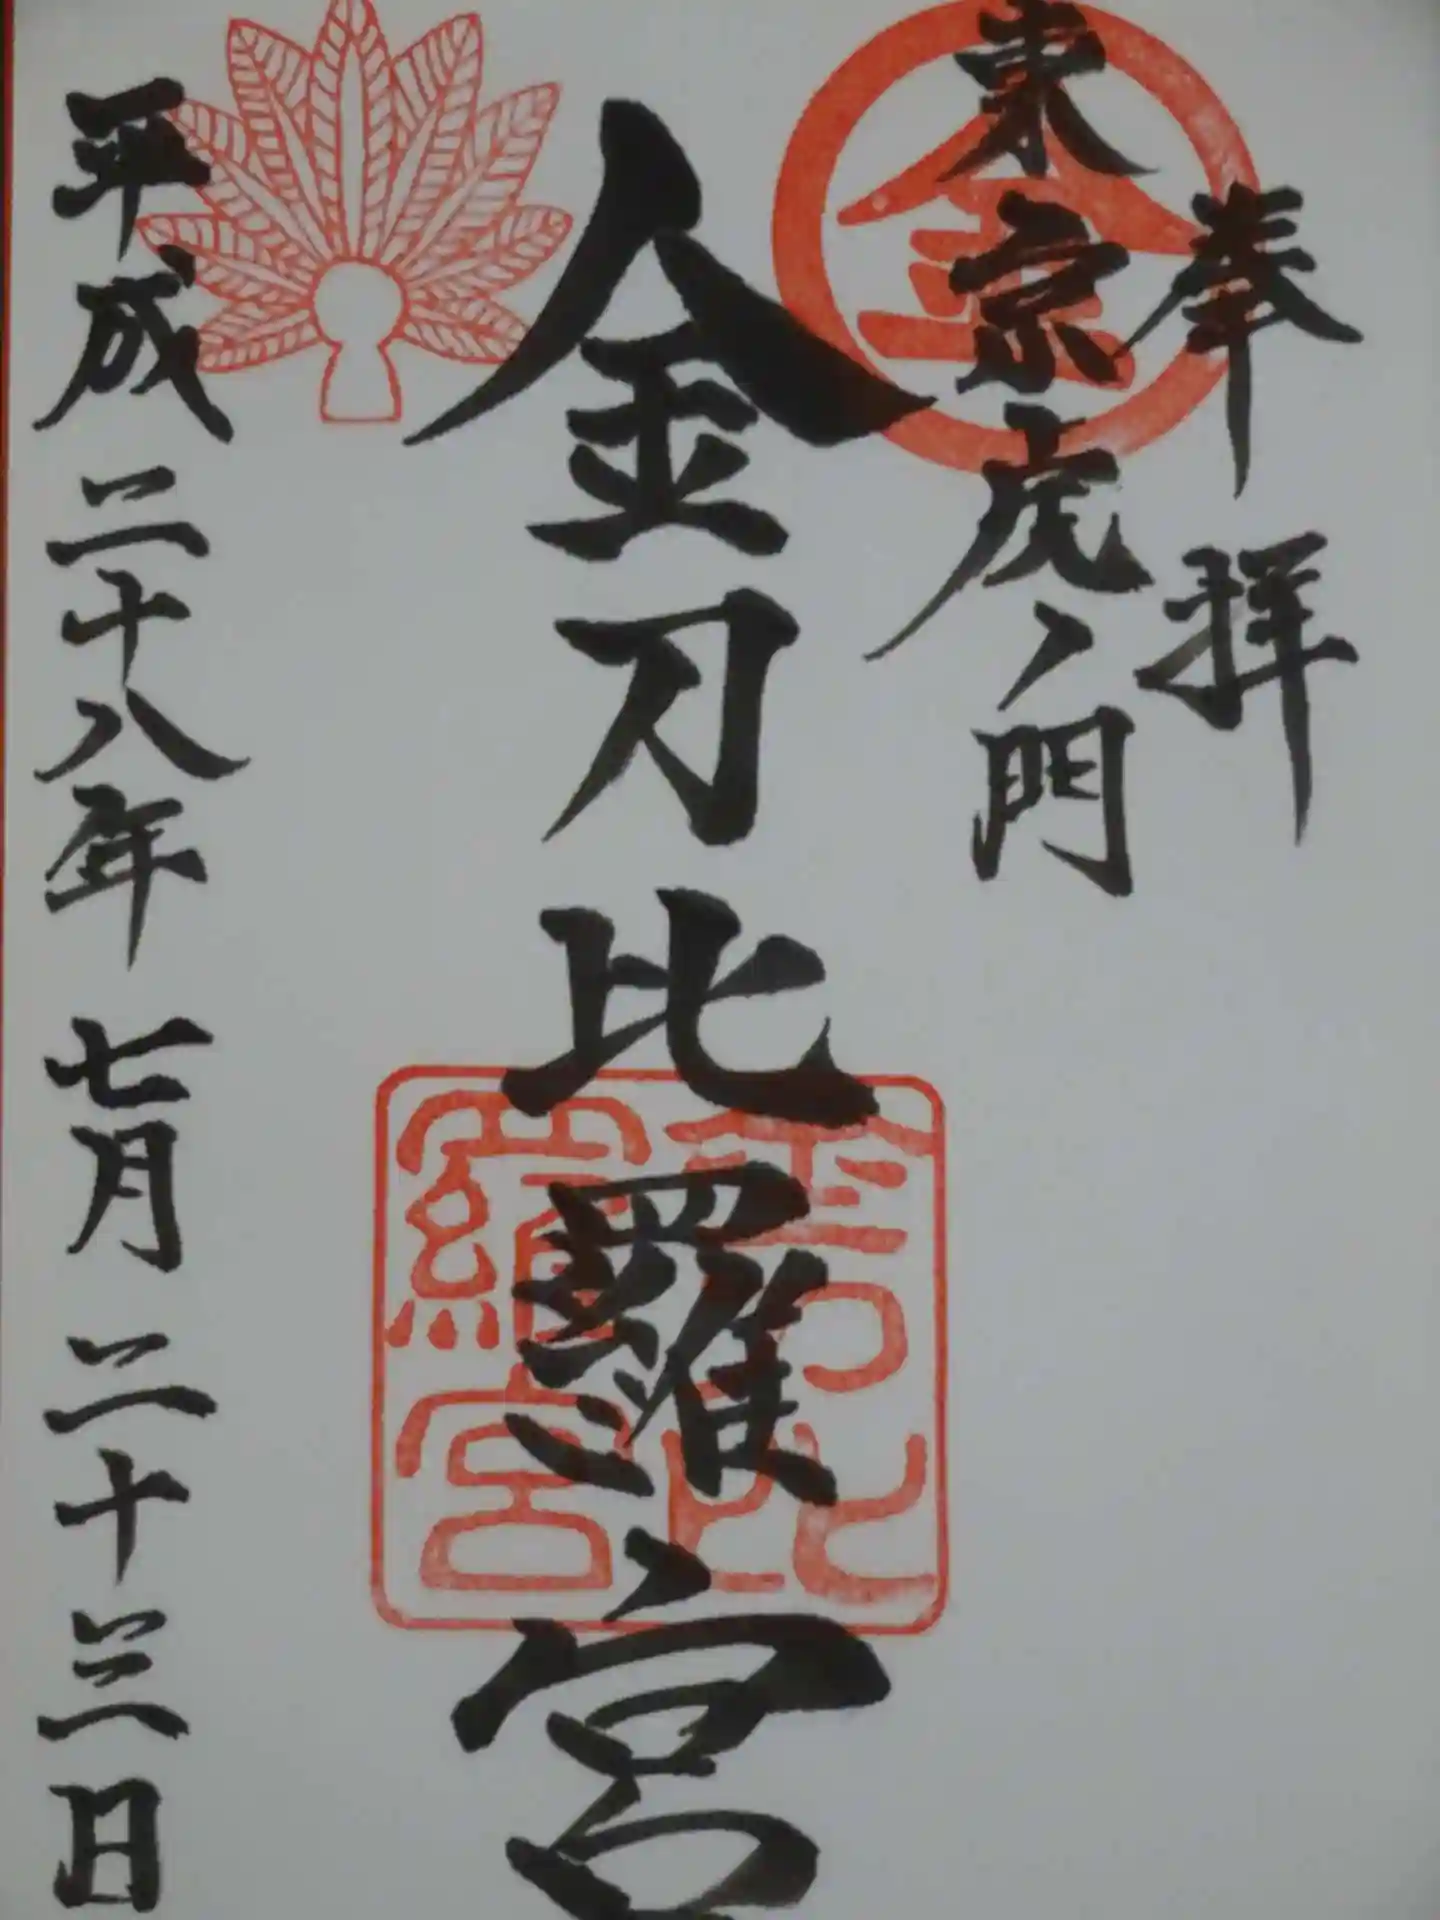 奉拝
東京虎ノ門
金
金刀比羅宮
金刀比羅宮
平成二十八年七月二十三日